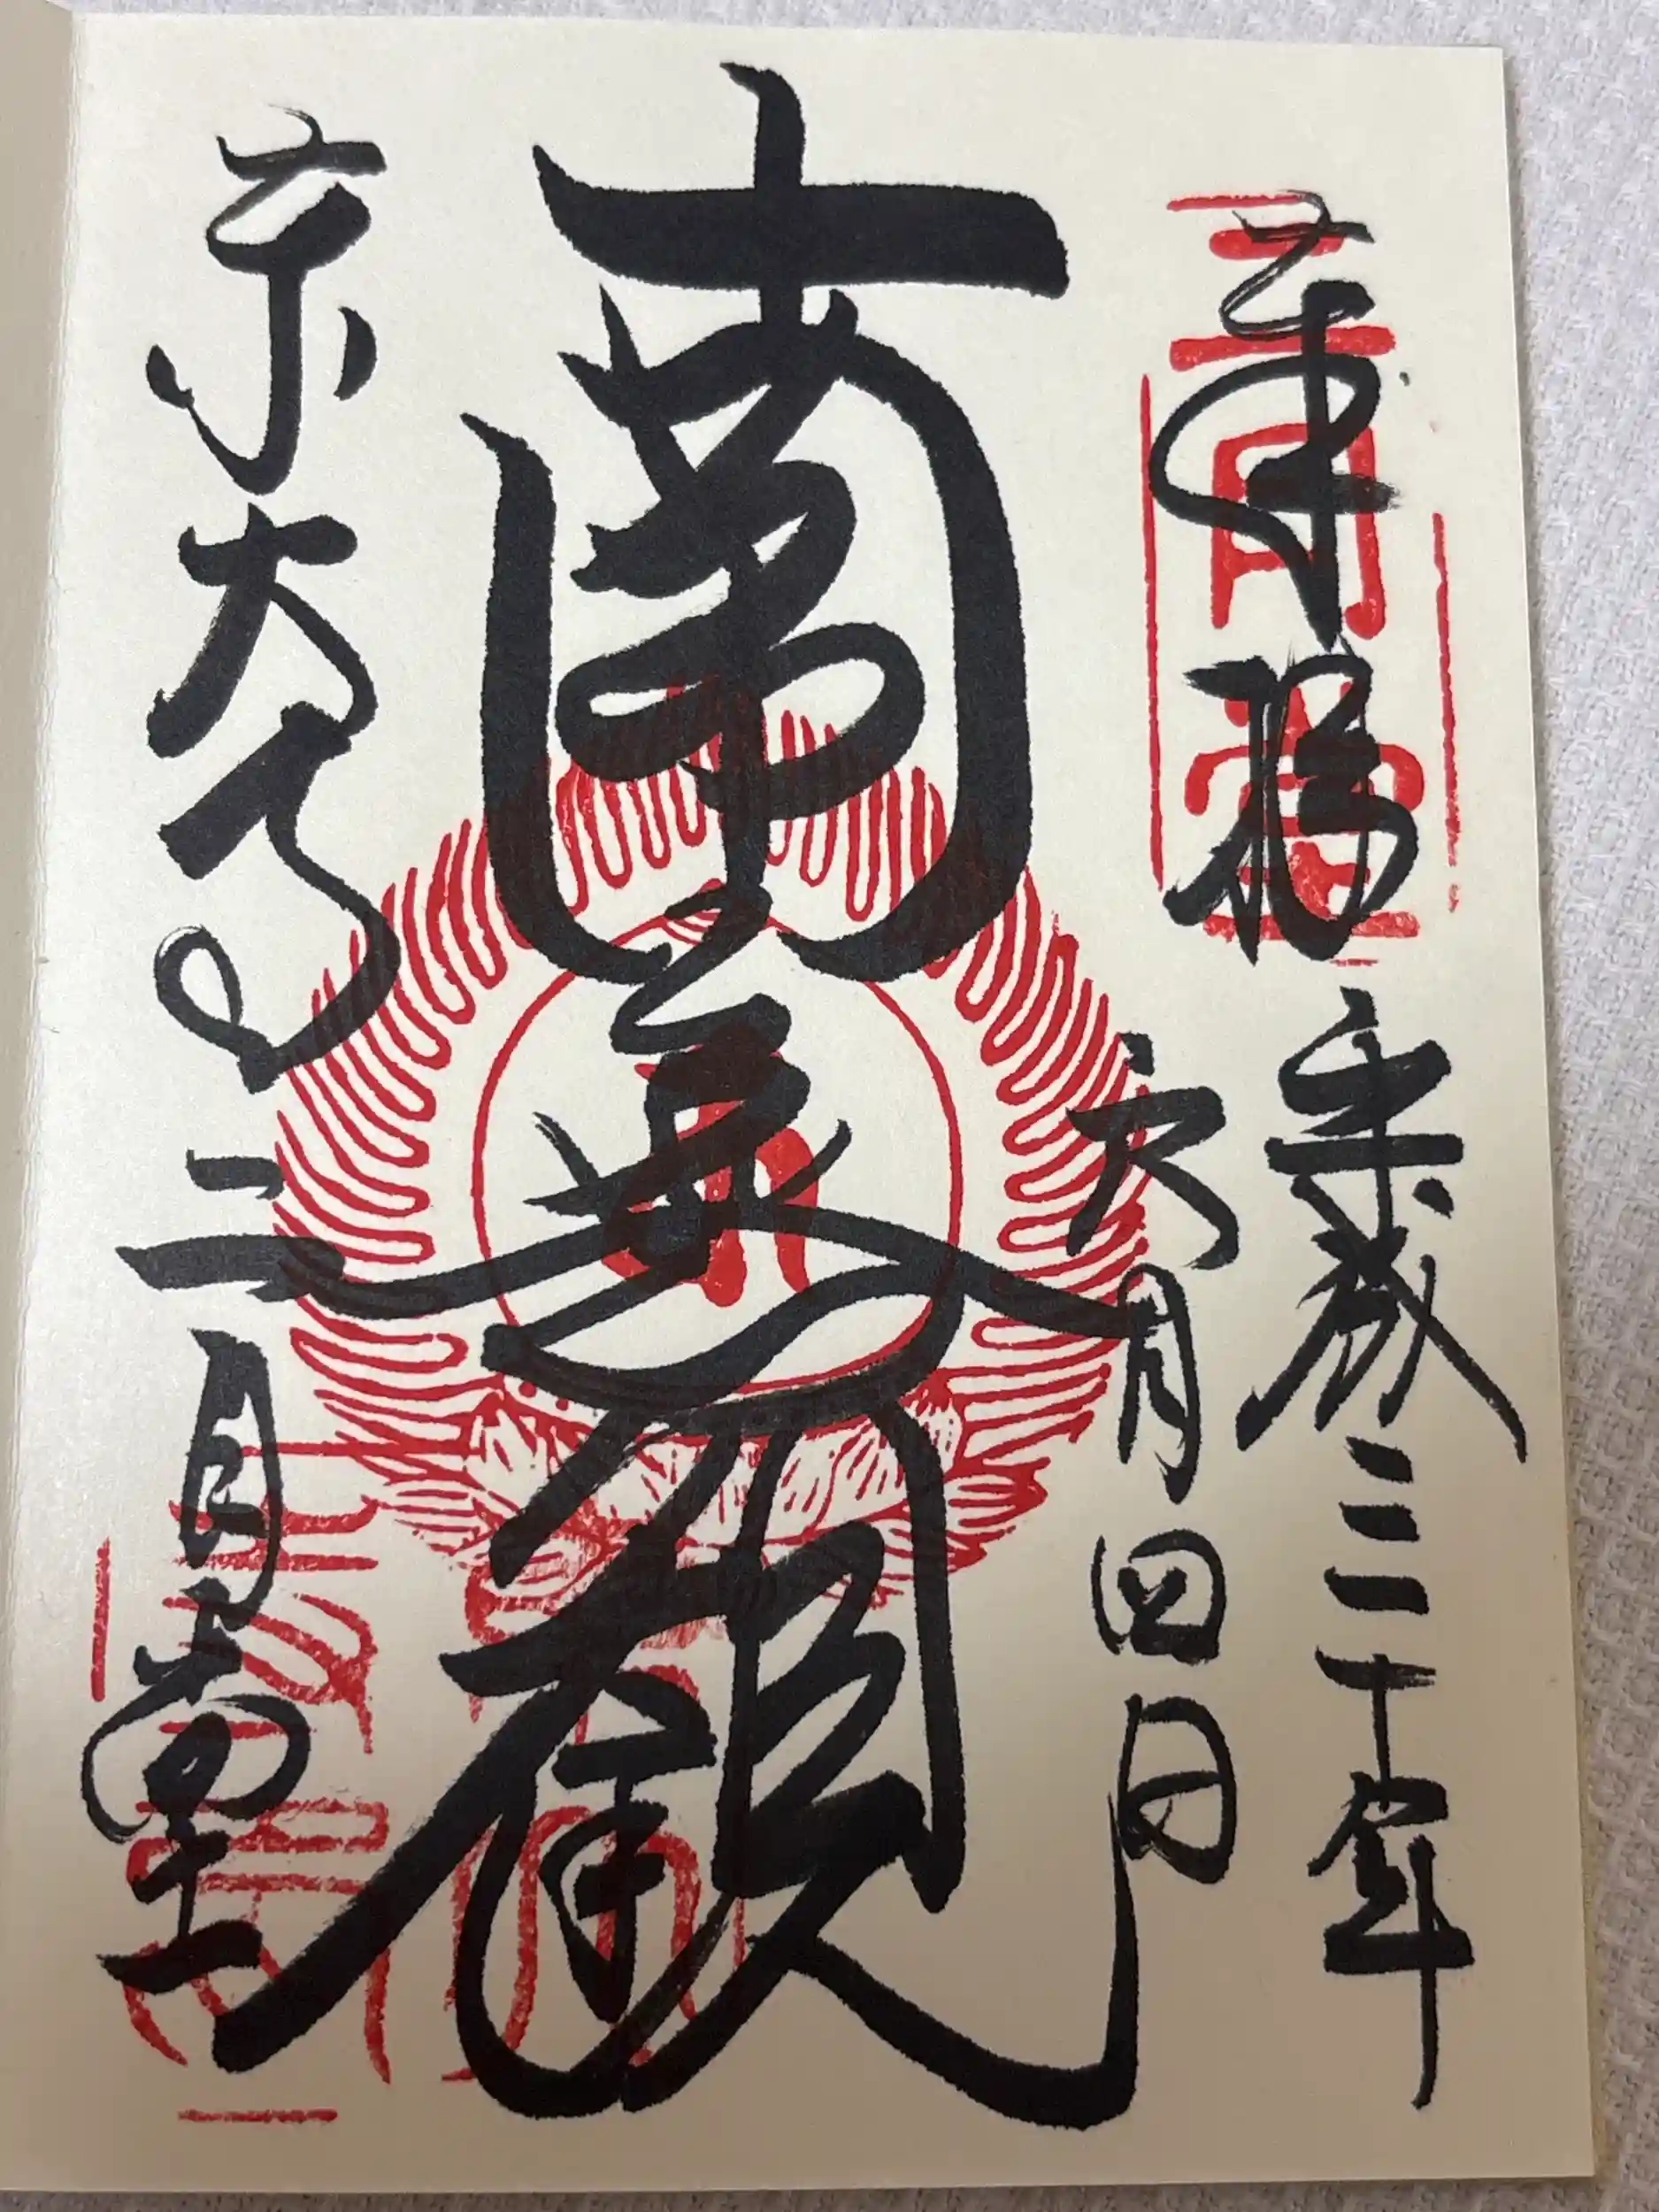 奉拝 平成三十年
六月四日
南無観
東大寺二月堂
二月堂